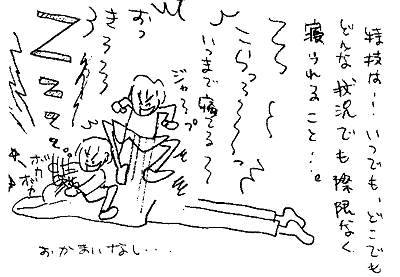 特技は…いつでも、どこでも
どんな状況でも際限なく
寝られること…。
こらっ〜〜っ
いつまで寝てる〜〜
ジャンプ
おっ
きろ〜〜
Zzzz
ボカ
ボカ
おかまいなし...